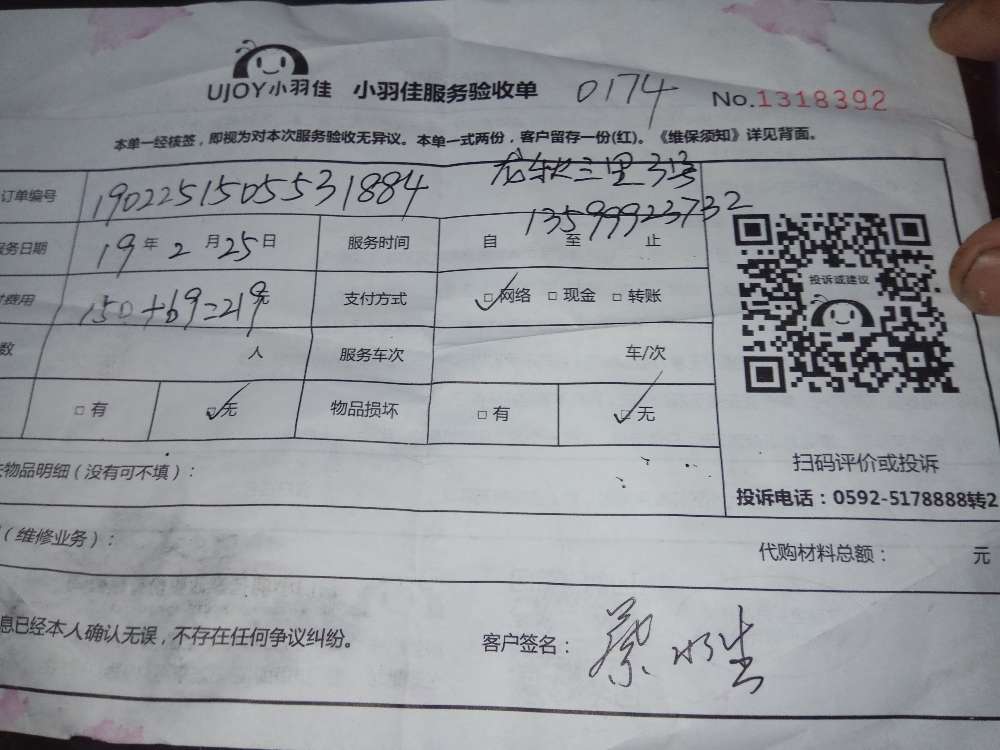 UJOY小羽佳 小羽佳服务验收单 0174 No.1318392
本单一经核签，即视为对本次服务验收无异议。本单一式两份，客户留存一份(红)。《维保须知》详见背面。
订单编号 1902251505531884 三里3号
13599923732
服务日期 19年2月25日 服务时间 自 至 止
费用 150+69=219元 支付方式 ☑网络 □现金 □转账
投诉或建议
数 人 服务车次 车/次
□有 ☑无 物品损坏 □有 ☑无
物品明细（没有可不填）：
扫码评价或投诉
投诉电话：0592-5178888转2
（维修业务）：
代购材料总额： 元
息已经本人确认无误，不存在任何争议纠纷。 客户签名：蔡